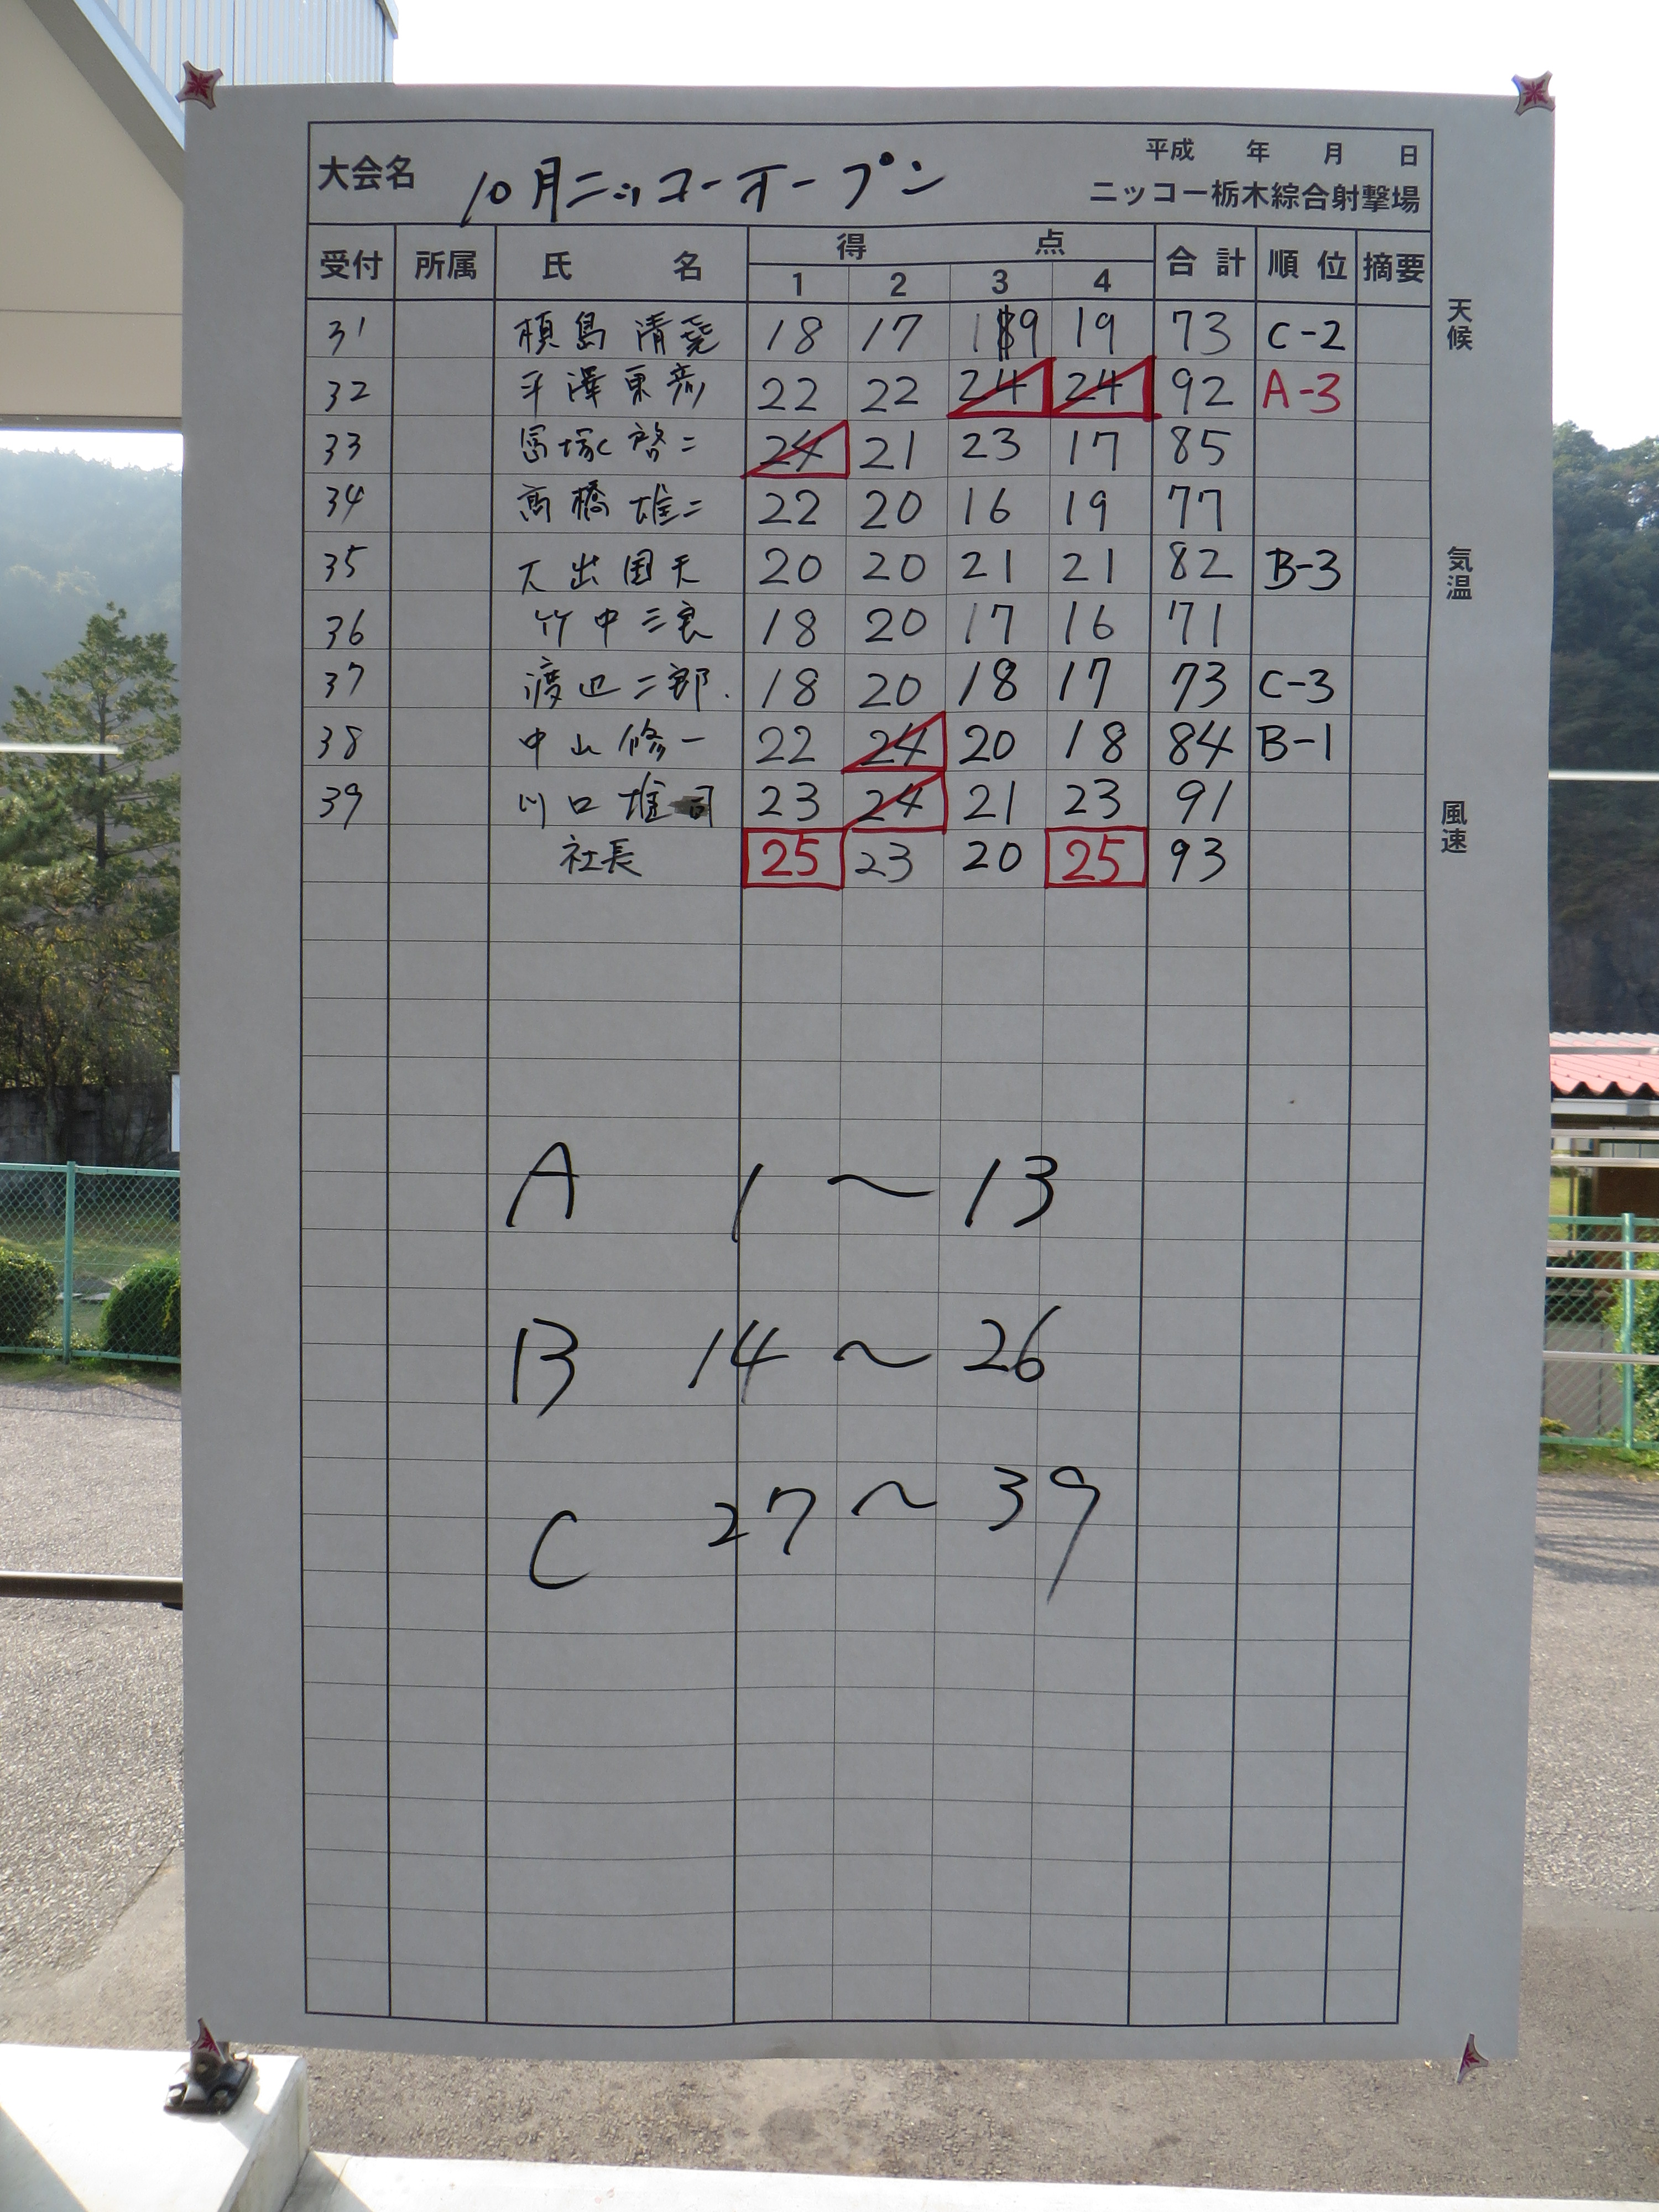 平成 年 月 日
大会名 10月ニッコーオープン ニッコー栃木綜合射撃場
受付 所属 氏 名 得 点 合計 順位 摘要
1 2 3 4
31 槙島 清 18 17 19 19 73 C-2
32 平澤 東彦 22 22 24 24 92 A-3
33 冨塚 啓二 24 21 23 17 85
34 高橋 雄二 22 20 16 19 77
35 大出 国夫 20 20 21 21 82 B-3
36 竹中 三良 18 20 17 16 71
37 渡辺 二郎 18 20 18 17 73 C-3
38 中山 修一 22 24 20 18 84 B-1
39 川口 雄司 23 24 21 23 91
社長 25 23 20 25 93
A 1 〜 13
B 14 〜 26
C 27 〜 39
天候
気温
風速